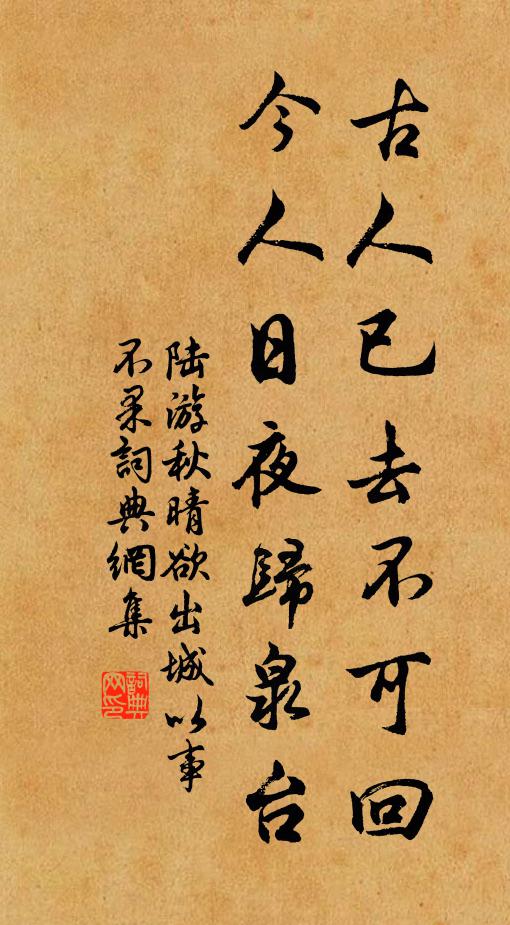 古人已去不可回
今人日夜歸泉台
陆游秋晴欲出城以事
不果詞典網集
詞典
网印